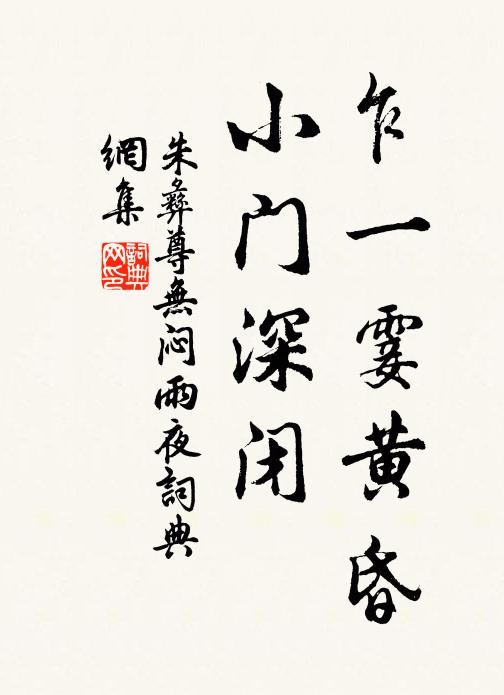 乍一霎黄昏
小门深闭
朱彝尊無闷雨夜詞典
網集
詞典网印